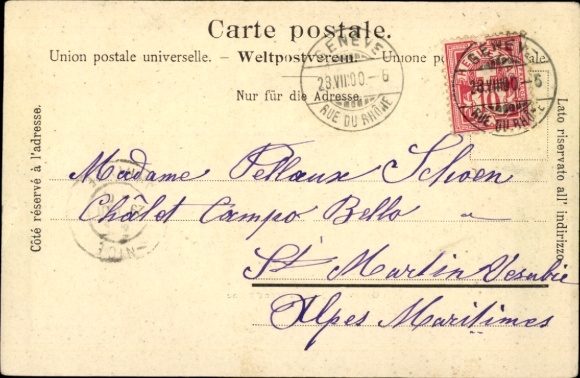 Carte postale.
Union postale universelle. – Weltpostverein. – Unione postale
Nur für die Adresse.
GENEVE
28.VII.00.–6
RUE DU RHÔNE
GENEVE
28.VII.00.–6
RUE DU RHÔNE
10
Côté réservé à l'adresse.
Lato riservato all' indirizzo.
Madame Pellaux Schoen
Châlet Campo Bello "
St Martin Vesubie
Alpes Maritimes